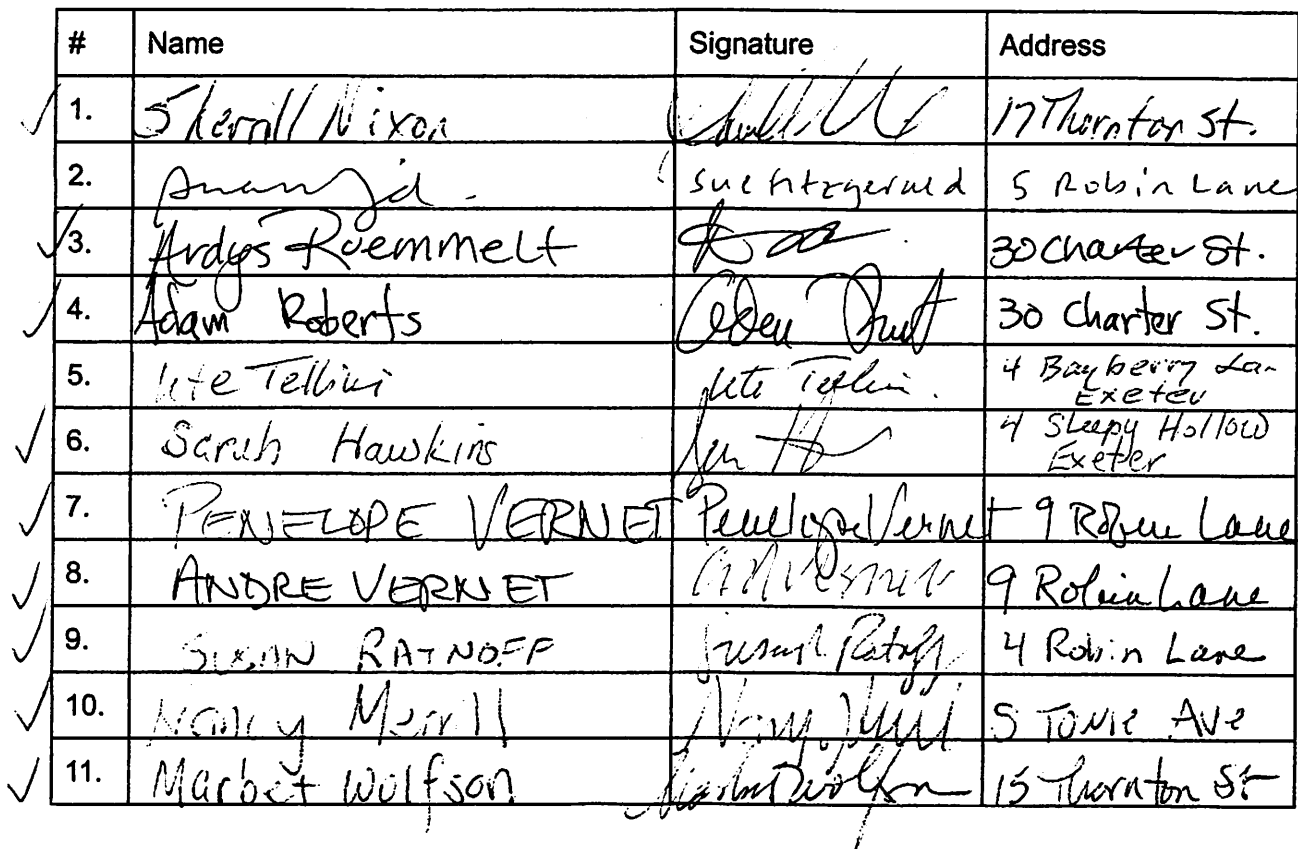 # Name Signature Address
1. Sherrill Nixon 17 Thornton St.
2. Sue Fitzgerald 5 Robin Lane
3. Ardys Roemmelt 30 Charter St.
4. Adam Roberts 30 Charter St.
5. Ute Tellini Ute Tellini 4 Bayberry Ln
Exeter
6. Sarah Hawkins 4 Sleepy Hollow
Exeter
7. PENELOPE VERNET Penelope Vernet 9 Robin Lane
8. ANDRE VERNET 9 Robin Lane
9. SUSAN RATNOFF Susan Ratnoff 4 Robin Lane
10. Nancy Merrill 5 Ave
11. Marbet Wolfson 15 Thornton St